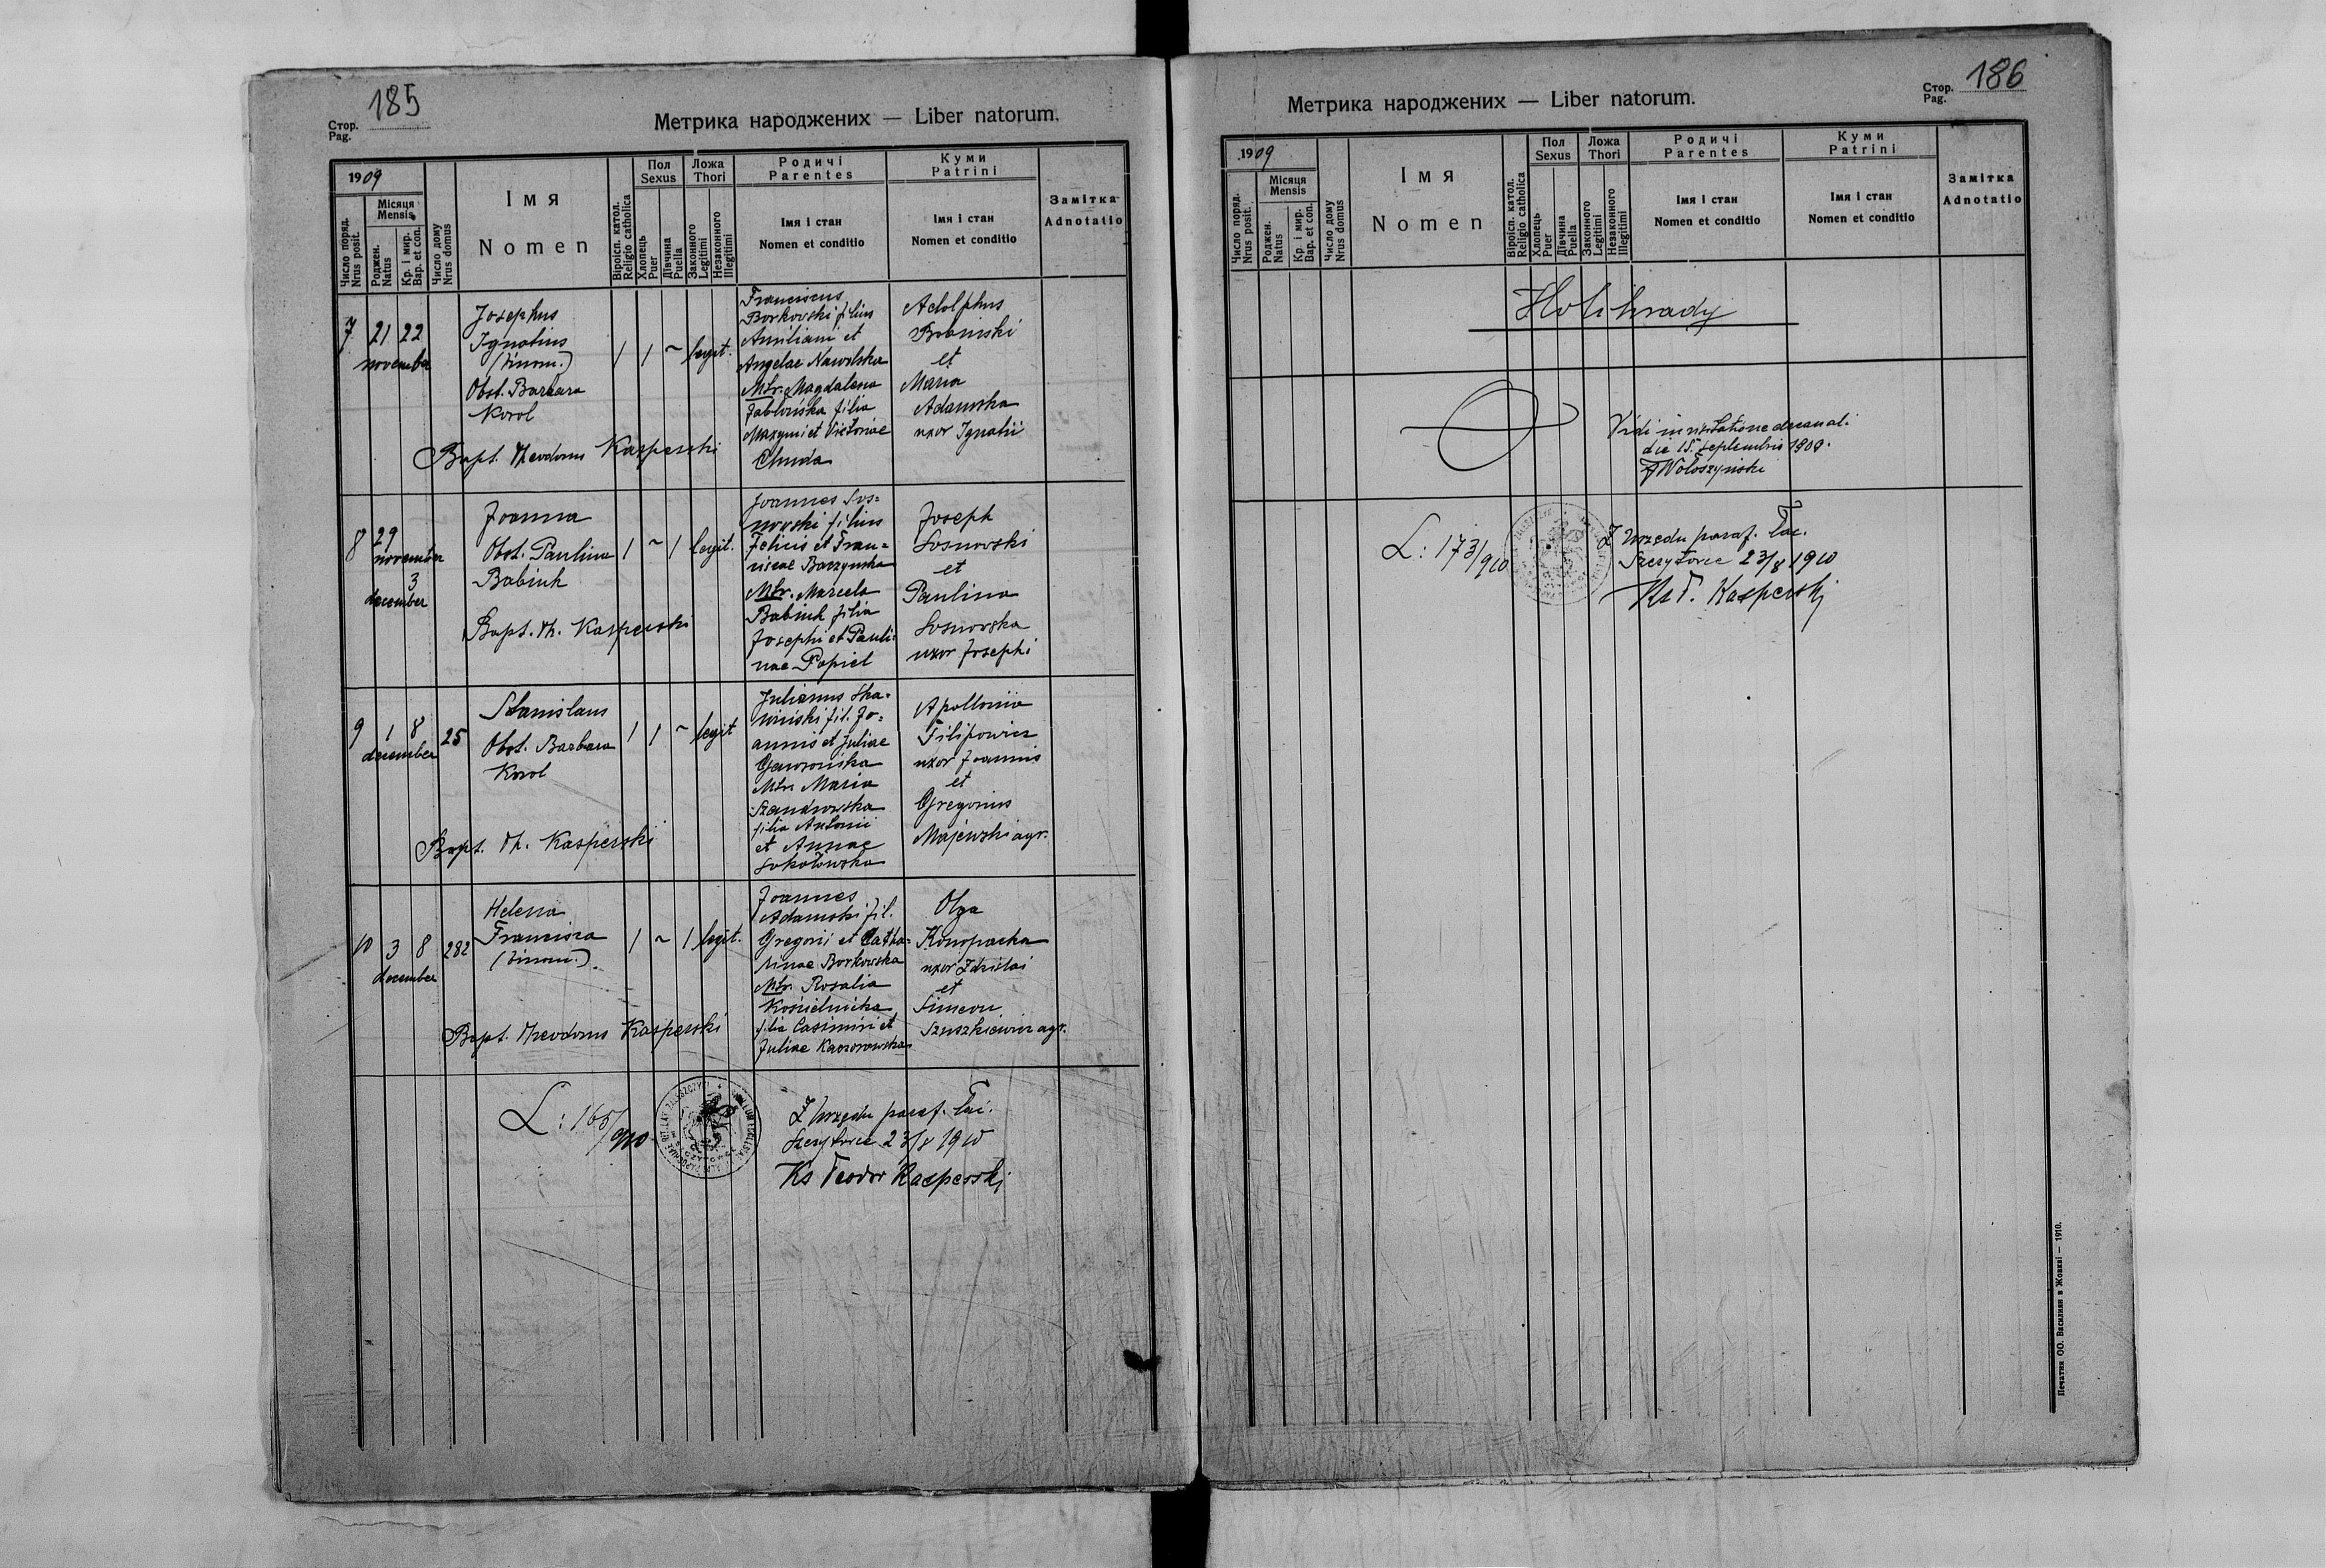 Стор.
Pag.
185
Метрика народжених — Liber natorum.
1909
Місяця
Mensis
Число поряд.
Nrus posit.
Роджен.
Natus
Кр. і мир.
Bap. et con.
Число дому
Nrus domus
Імя
Nomen
Віроісп. катол.
Religio catholica
Пол
Sexus
Хлопець
Puer
Дівчина
Puella
Ложа
Thori
Законного
Legitimi
Незаконного
Illegitimi
Родичі
Parentes
Імя і стан
Nomen et conditio
Куми
Patrini
Імя і стан
Nomen et conditio
Замітка
Adnotatio
7 21 22
november
Josephus
Ignatius
(binom.)
Obst. Barbara
Korol
1 1 ~ legit.
Franciscus
Borkowski filius
Aemiliani et
Angelae Nawolska
Mtr. Magdalena
Jabłońska filia
Maxymi et Victoriae
Chuda
Adolphus
et
Maria
Adamska
uxor Ignatii
Bapt. Theodorus Kasperski
8 29
november
3
december
Joanna
Obst. Paulina
Babiuk
1 ~ 1 legit.
Joannes Sos=
novski filius
Felicis et Fran=
ciscae Barzynska
Mtr. Marcela
Babiuk filia
Josephi et Pauli=
nae Popiel
Joseph
Sosnovski
et
Paulina
Sosnovska
uxor Josephi
Bapt. Th. Kasperski
9 1 8
december
25
Stanislaus
Obst. Barbara
Korol
1 1 ~ legit
Julianus Ska=
wiński fil. Jo=
annis et Juliae
Gawrońska
Mtr. Maria
Szandrowska
filia Antonii
et Annae
Sokołowska
Apollonia
Filipowicz
uxor Joannis
et
Gregorius
Majewski agr.
Bapt. Th. Kasperski
10 3 8 282
december
Helena
Francisca
(binom.)
1 ~ 1 legit.
Joannes
Adamski fil.
Gregorii et Catha=
rinae Borkowska
Mtr. Rosalia
Kościelnicka
filia Casimiri et
Juliae Kaczorowska
Olga
Konopacka
uxor Zdzislai
et
Simeon
Szuszkiewicz agr.
Bapt. Theodorus Kasperski
L: 165/910
Z Urzędu paraf. łać.
Szczytowce 23/8 1910
Ks Teodor Kasperski
Стор.
Pag.
186
Метрика народжених — Liber natorum.
1909
Місяця
Mensis
Число поряд.
Nrus posit.
Роджен.
Natus
Кр. і мир.
Bap. et con.
Число дому
Nrus domus
Імя
Nomen
Віроісп. катол.
Religio catholica
Пол
Sexus
Хлопець
Puer
Дівчина
Puella
Ложа
Thori
Законного
Legitimi
Незаконного
Illegitimi
Родичі
Parentes
Імя і стан
Nomen et conditio
Куми
Patrini
Імя і стан
Nomen et conditio
Замітка
Adnotatio
Holihrady
Vidi in visitatione decanali
die 15. septembris 1909.
Wołoszyński
L: 173/910
Z Urzędu paraf. łac.
Szczytowce 23/8 1910
Ks T. Kasperski
Печатня ОО. Василіян в Жовкві — 1910.